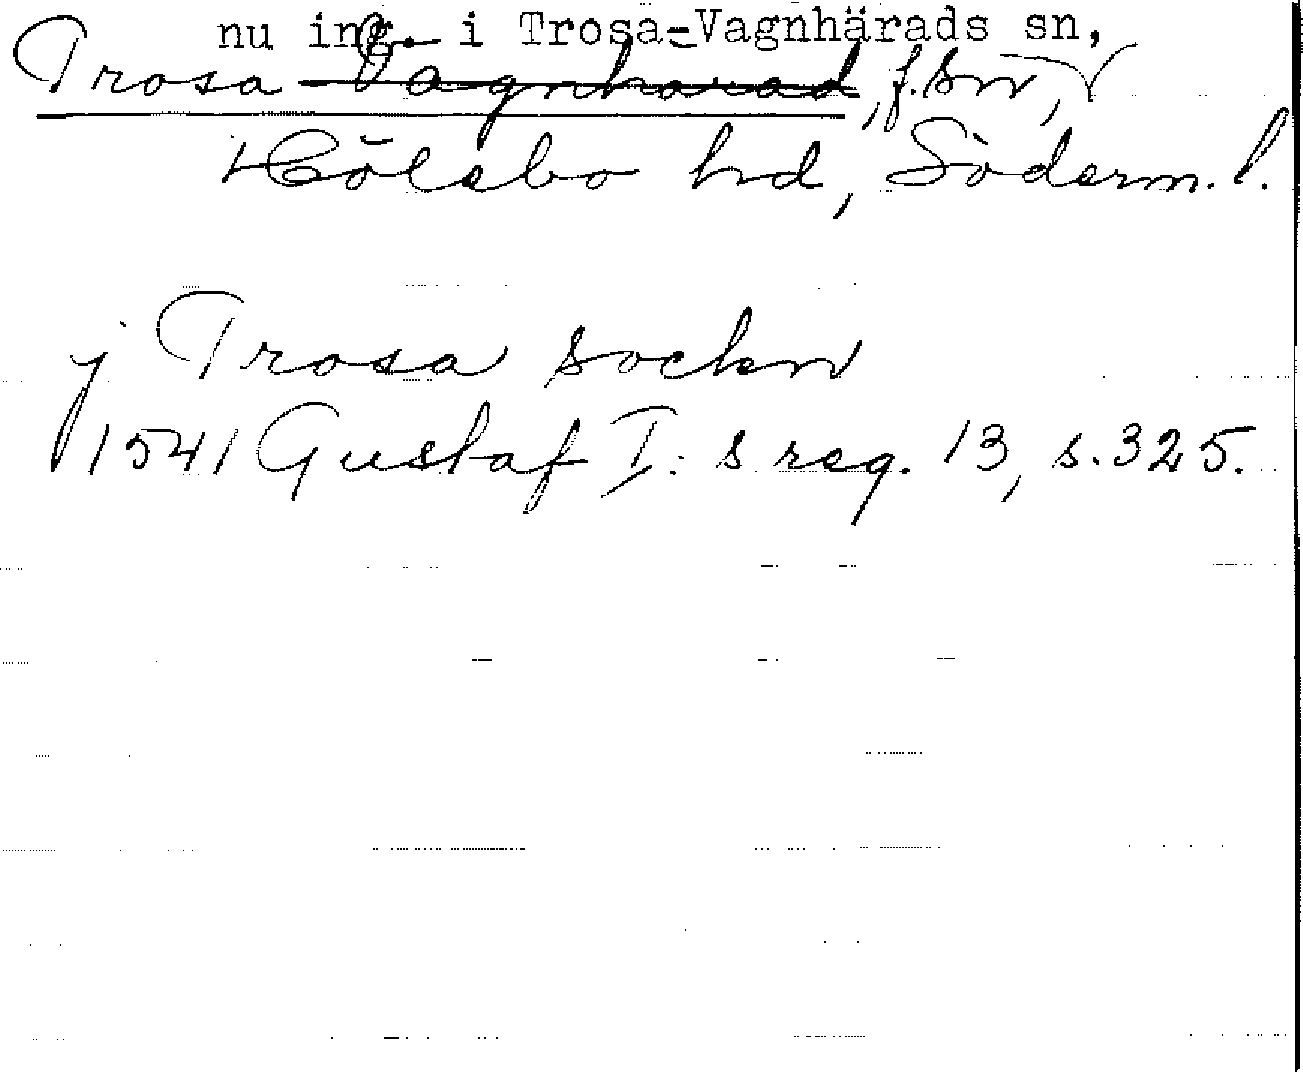 nu ing. i Trosa-Vagnhärads sn,
Trosa Vagnhärad, f. sn,
Hölebo hd, Söderm. l.
j Trosa sockn
1541 Gustaf I:s reg. 13, s. 325.